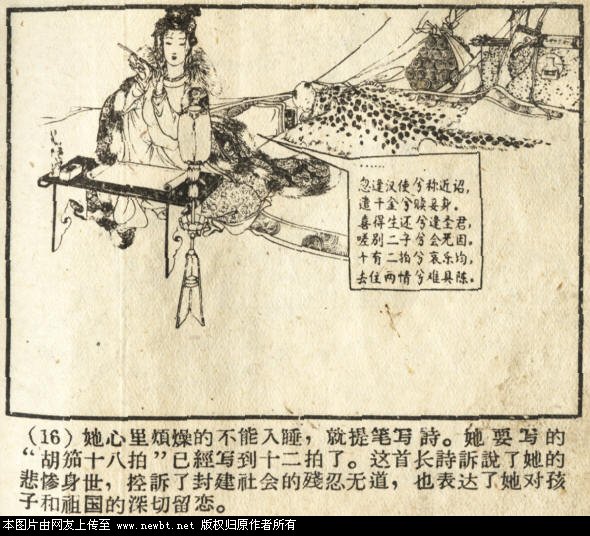 ……
忽逢汉使兮称近诏，
遣千金兮赎妾身。
喜得生还兮逢圣君，
嗟别二子兮会无因。
十有二拍兮哀乐均，
去住两情兮难具陈。
（16）她心里煩燥的不能入睡，就提笔写詩。她要写的
“胡笳十八拍”已經写到十二拍了。这首长詩訴說了她的
悲惨身世，控訴了封建社会的殘忍无道，也表达了她对孩
子和祖国的深切留恋。
本图片由网友上传至 www.newbt.net 版权归原作者所有